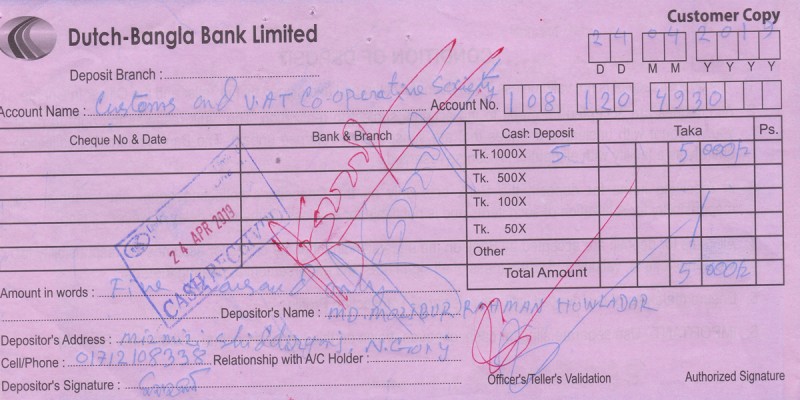 Customer Copy
Dutch-Bangla Bank Limited
24 04 2019
D D M M Y Y Y Y
Deposit Branch :
Account Name : Customs and VAT Co-operative Society Account No. 108 120 4930
Cheque No & Date Bank & Branch Cash Deposit Taka Ps.
Tk. 1000X 5 5 000/=
Tk. 500X
Tk. 100X
Tk. 50X
Other
Total Amount 5 000/=
24 APR 2019
CASH RECEIVED
Amount in words : Five thousand only
Depositor's Name : MD MOZIBUR RAHMAN HOWLADAR
Depositor's Address :
Cell/Phone : 01712108338 Relationship with A/C Holder :
Depositor's Signature :
Officer's/Teller's Validation Authorized Signature